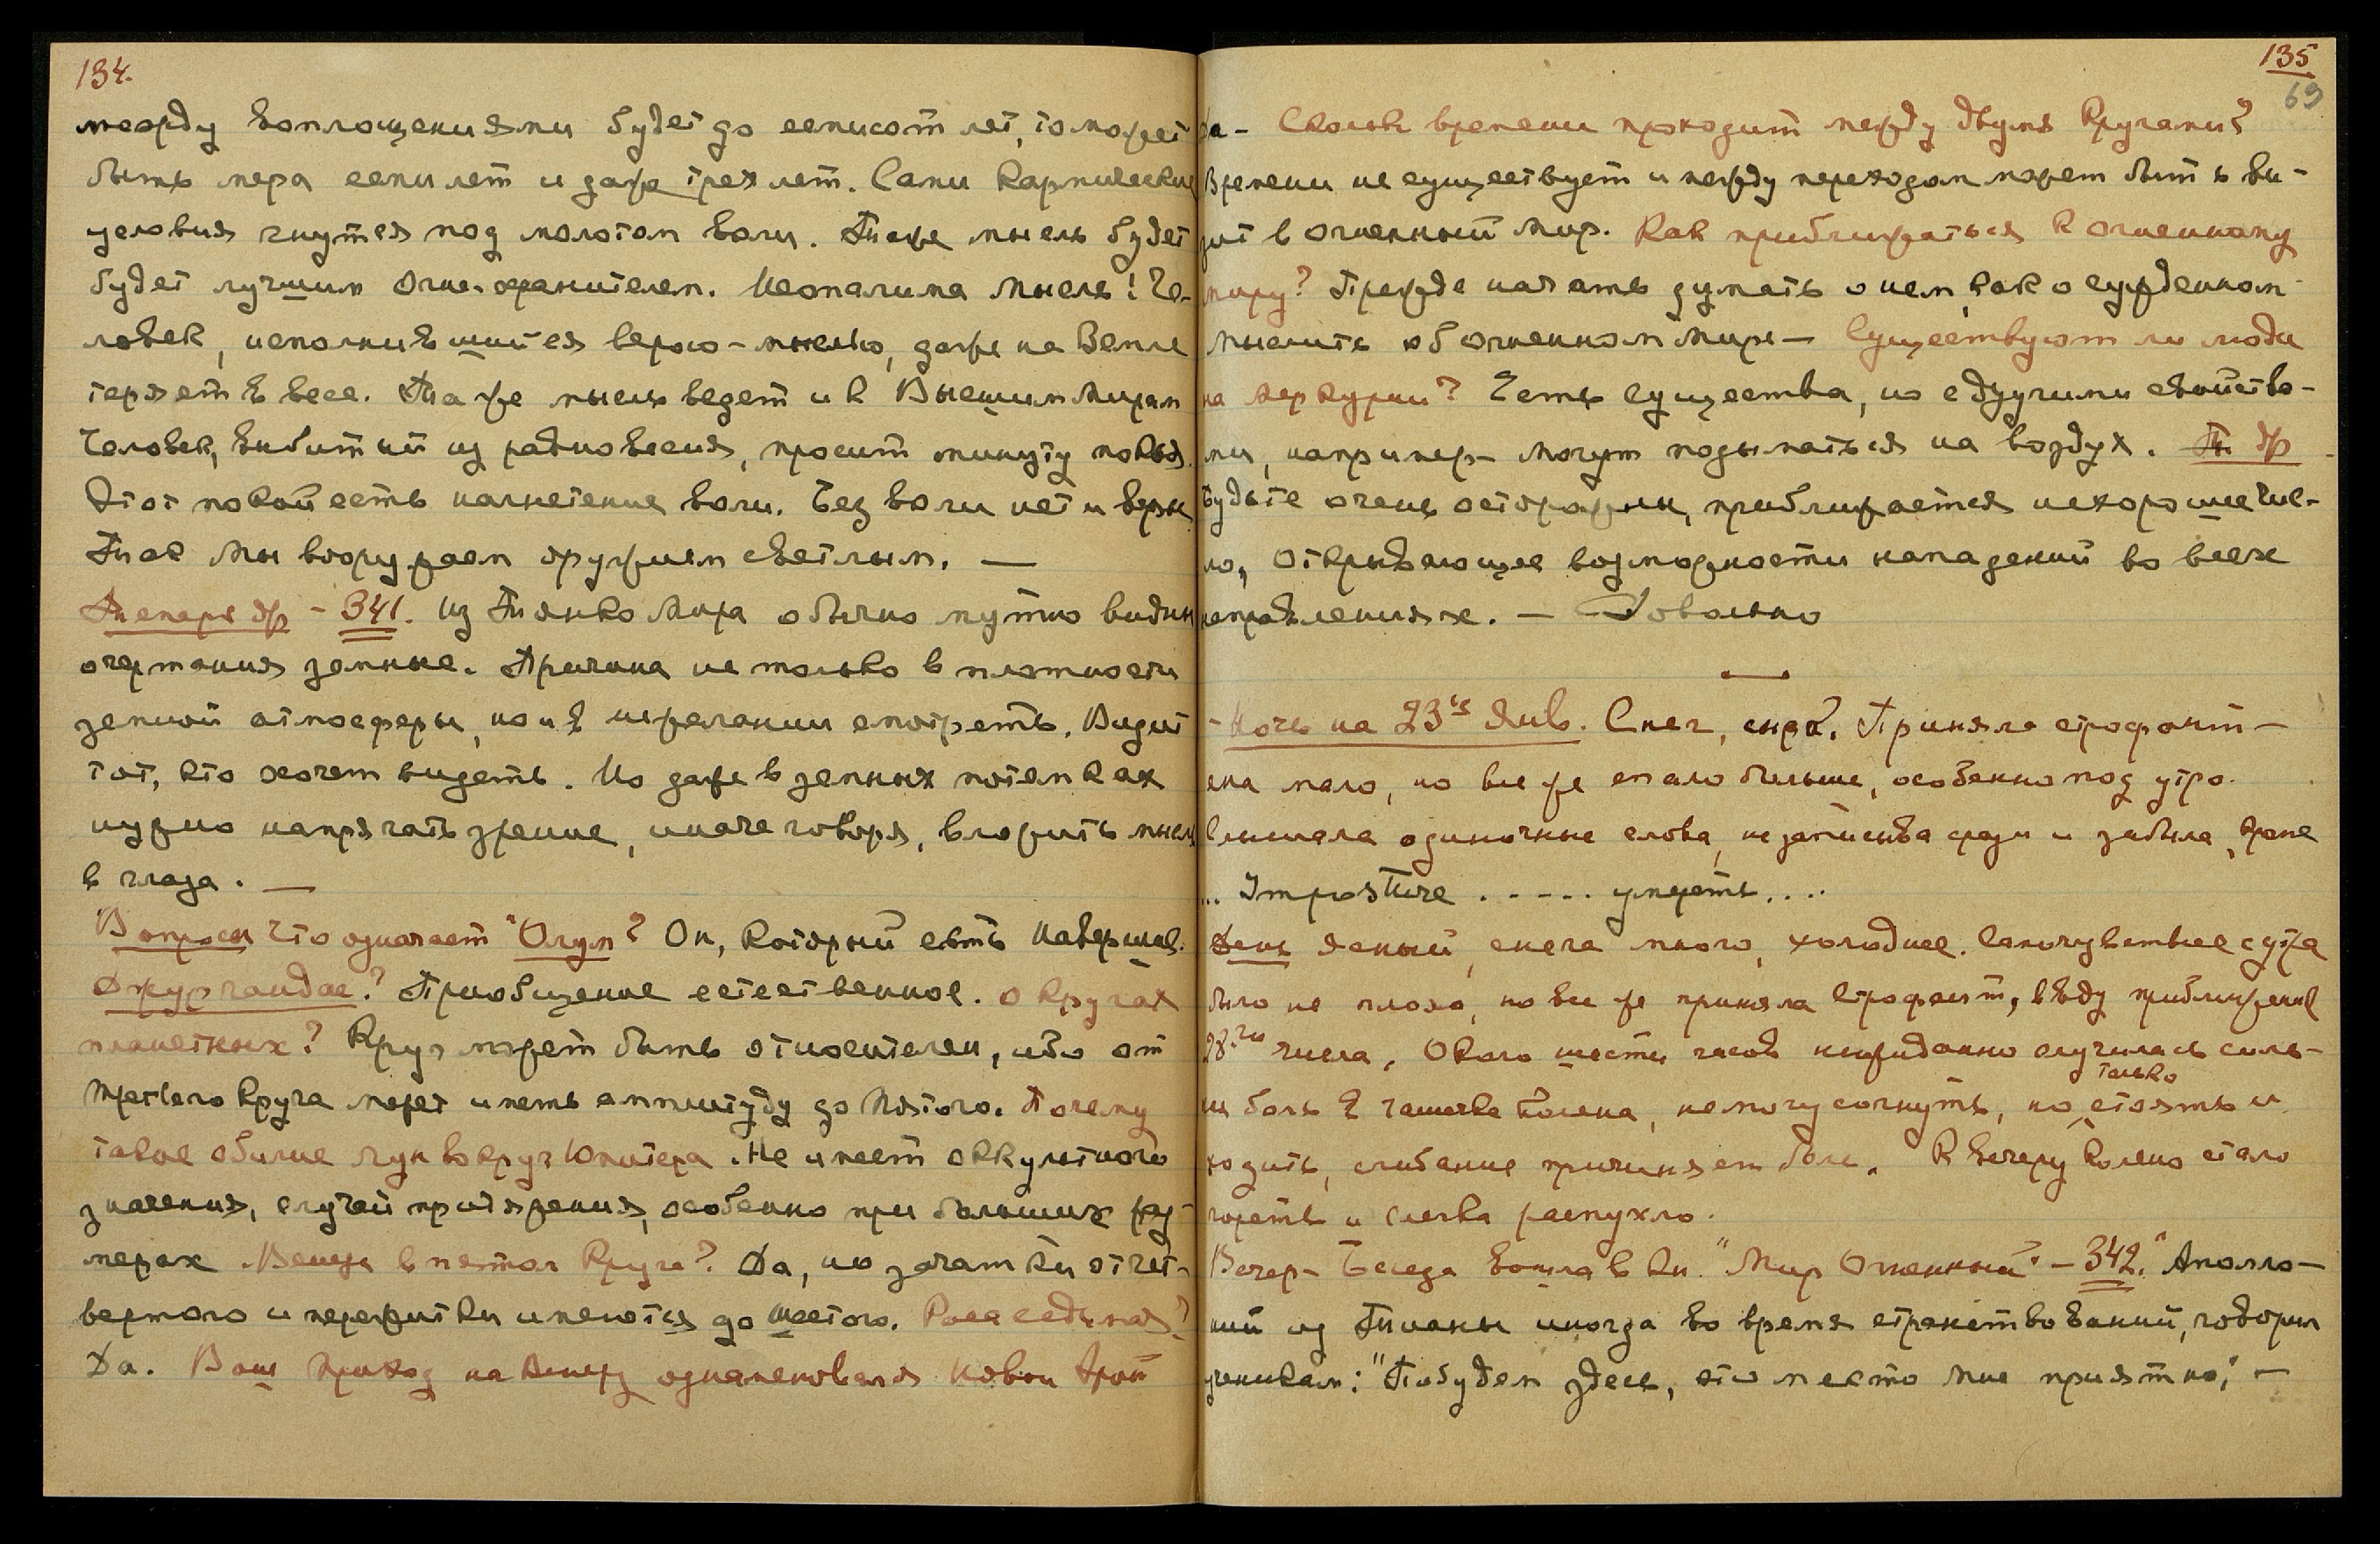 134.
между воплощениями будет до семисот лет, то может
быть мера семи лет и даже трех лет. Сами кармические
условия гнутся под молотом воли. Та же мысль будет
будет лучшим огне-хранителем. Неопалима мысль! Че-
ловек, исполнившийся верою-мыслью, даже на Земле
теряет в весе. Та же мысль ведет и к Высшим Мирам
Человек, выбитый из равновесия, просит минуту покоя.
Этот покой есть нагнетение воли. Без воли нет и веры
Так Мы вооружаем оружием светлым. —
Теперь др – 341. Из Тонкого Мира обычно мутно видны
очертания земные. Причина не только в плотности
земной атмосферы, но и в нежелании смотреть. Видит
тот, кто хочет видеть. Но даже в земных потемках
нужно напрягать зрение, иначе говоря, вложить мысль
в глаза. —
Вопросы Что означает "Олум"? Он, который есть Навершов.
Джургандас? Приобщение естественное. О кругах
планетных? Круг может быть относителен, ибо от
третьего круга может иметь амплитуду до пятого. Почему
такое обилие лун вокруг Юпитера. Не имеет оккультного
значения, случай притяжения, особенно при больших раз-
мерах. Венера в пятом Круге? Да, но зачатки от чет-
вертого и пережитки имеются до шестого. Раса седьмая?
Да. Ваш приход на Венеру ознаменовался новой
135
69
Да – Сколько времени проходит между двумя Кругами?
Времени не существует и между переходом может быть ви-
зит в Огненный Мир. Как приближаться к Огненному
миру? Прежде начать думать о нем, как о сужденном
Мыслить об Огненном Мире — Существуют ли люди
на Меркурии? Есть существа, но с другими свойства-
ми, например – могут подыматься на воздух. Т. др
Будьте очень осторожны, приближается нехорошее чис-
ло, открывающее возможности нападений во всех
направлениях. — Довольно
– Ночь на 23ье Янв. Снег, сыро. Приняла строфант –
спала мало, но все же спала больше, особенно под утро.
Слышала одиночные слова, не записыва сразу и забыла, кроме
... Imposture ..... умереть....
День ясный, снега много, холоднее. Самочувствие с утра
было не плохо, но все же приняла Строфант, ввиду приближения
28-го числа. Около шести часов неожиданно случилась силь-
ная боль в чашечке колена, не могу согнуть, но только стоять и
ходить, сгибание причиняет боль. К вечеру колено стало
гореть и слегка распухло.
Вечер – Беседа вошла в Кн. "Мир Огненный". – 342." Аполло-
ний из Тианы иногда во время странствований, говорил
ученикам: "Побудем здесь, это место Мне приятно". –